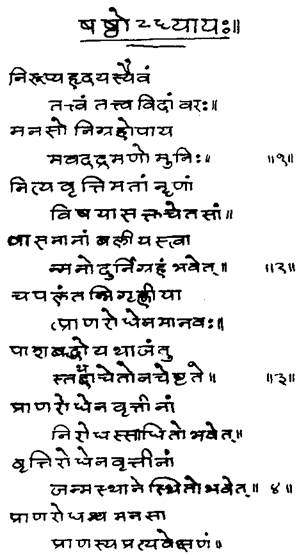 षष्ठोऽध्यायः॥
निरूप्यहृदयस्यैवं
तत्त्वं तत्त्वविदांवरः॥
मनसो निग्रहोपाय
मवदद्रमणो मुनिः॥ ॥१॥
नित्यवृत्तिमतां नॄणां
विषयासक्तचेतसां॥
वासनानां बलीयस्त्वा
न्मनोदुर्निग्रहं भवेत्॥ ॥२॥
चपलंतन्निगृह्णीया
त्प्राणरोधेनमानवः॥
पाशबद्धो यथाजंतु
स्तथाचेतोनचेष्टते॥ ॥३॥
प्राणरोधेन वृत्तीनां
निरोधस्साधितोभवेत्॥
वृत्तिरोधेनवृत्तीनां
जन्मस्थाने स्थितोभवेत्॥ ४॥
प्राणरोधश्च मनसा
प्राणस्य प्रत्यवेक्षणं॥